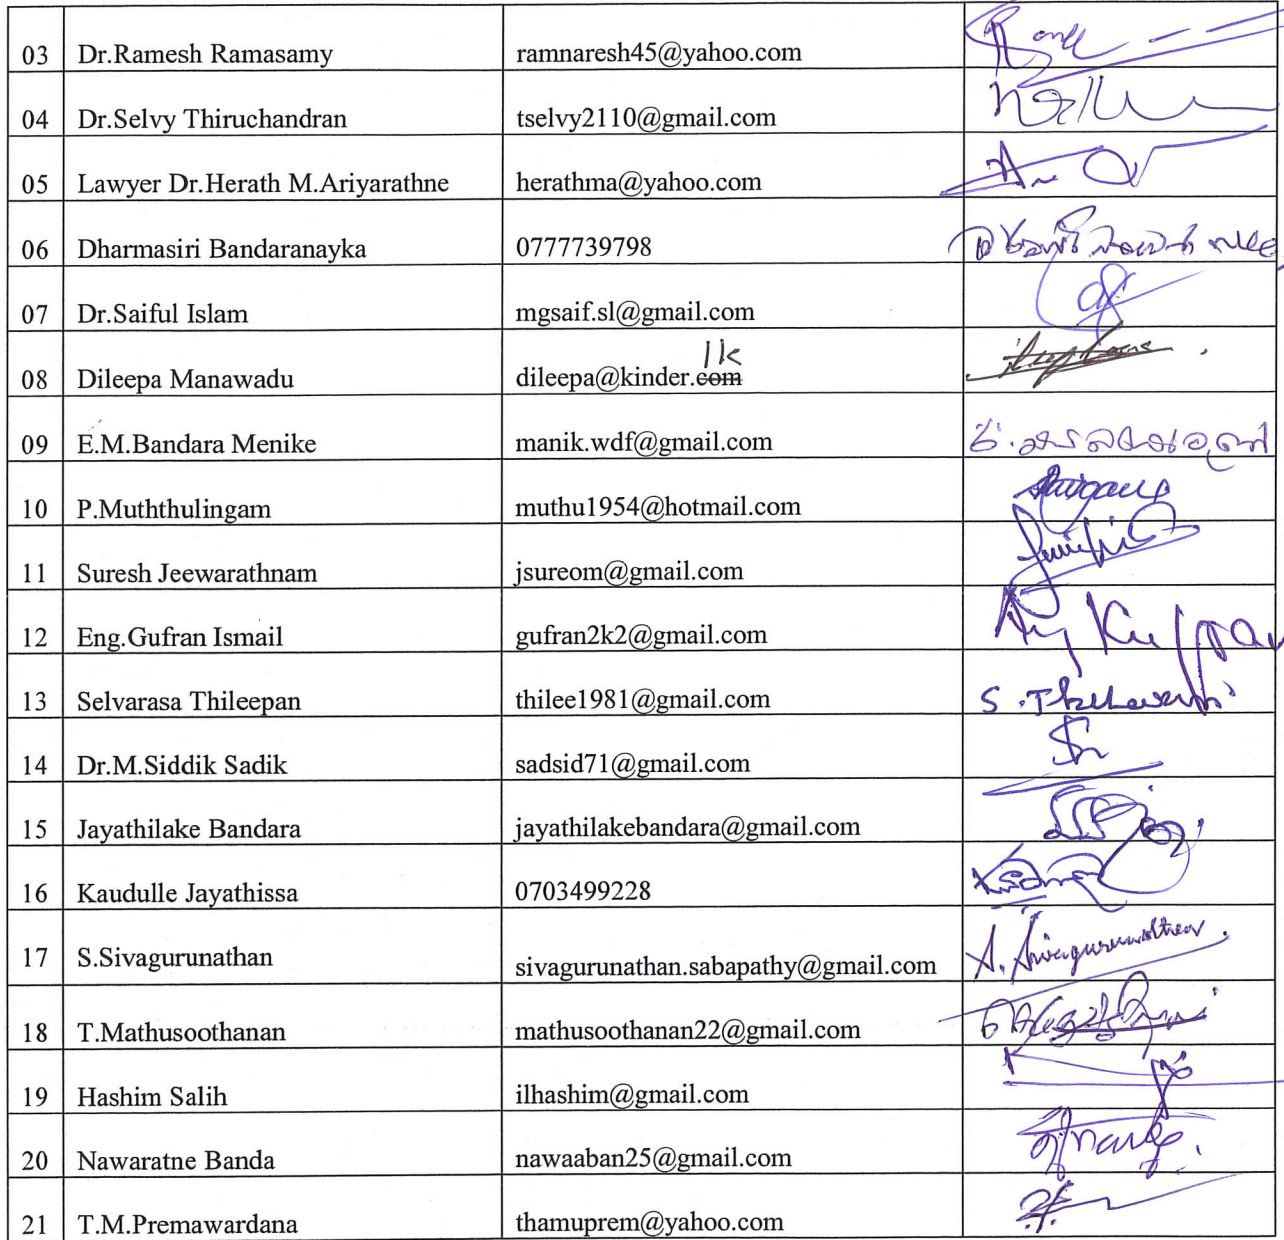 03 Dr.Ramesh Ramasamy ramnaresh45@yahoo.com
04 Dr.Selvy Thiruchandran tselvy2110@gmail.com
05 Lawyer Dr.Herath M.Ariyarathne herathma@yahoo.com
06 Dharmasiri Bandaranayka 0777739798
07 Dr.Saiful Islam mgsaif.sl@gmail.com
lk
08 Dileepa Manawadu dileepa@kinder.com
09 E.M.Bandara Menike manik.wdf@gmail.com
10 P.Muththulingam muthu1954@hotmail.com
11 Suresh Jeewarathnam jsureom@gmail.com
12 Eng.Gufran Ismail gufran2k2@gmail.com
13 Selvarasa Thileepan thilee1981@gmail.com
14 Dr.M.Siddik Sadik sadsid71@gmail.com
15 Jayathilake Bandara jayathilakebandara@gmail.com
16 Kaudulle Jayathissa 0703499228
17 S.Sivagurunathan sivagurunathan.sabapathy@gmail.com S. Sivagurunathan.
18 T.Mathusoothanan mathusoothanan22@gmail.com
19 Hashim Salih ilhashim@gmail.com
20 Nawaratne Banda nawaaban25@gmail.com
21 T.M.Premawardana thamuprem@yahoo.com